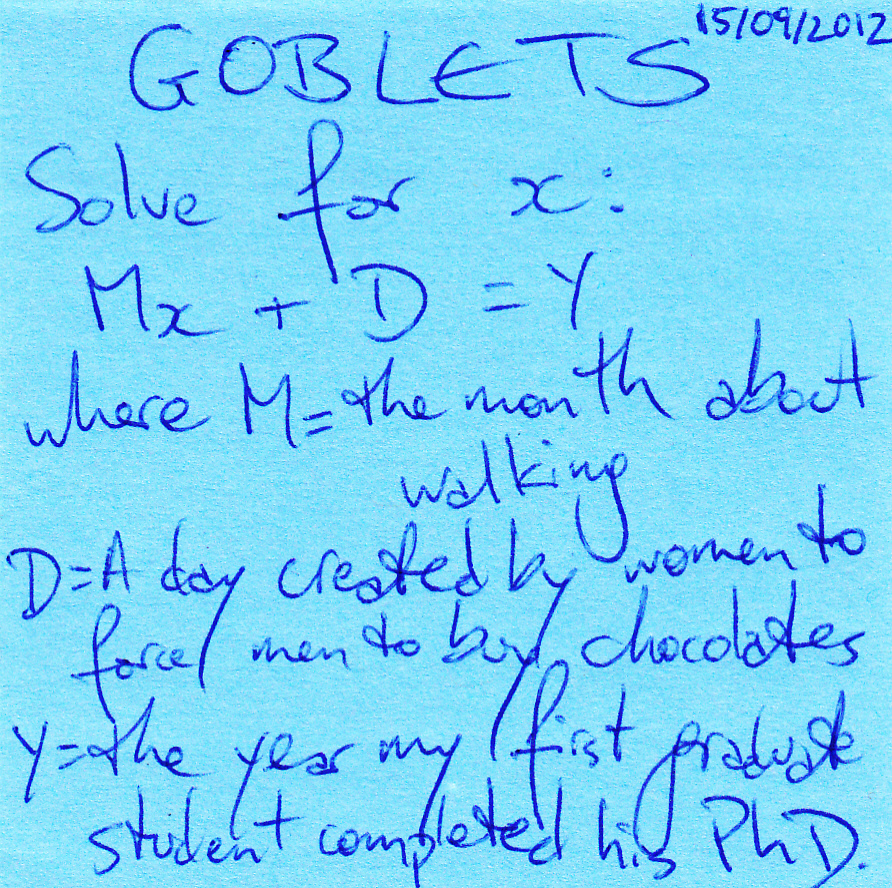 15/09/2012
GOBLETS
Solve for x:
Mx + D = Y
where M = the month about
walking
D = A day created by women to
force men to buy chocolates
Y = the year my first graduate
student completed his PhD.